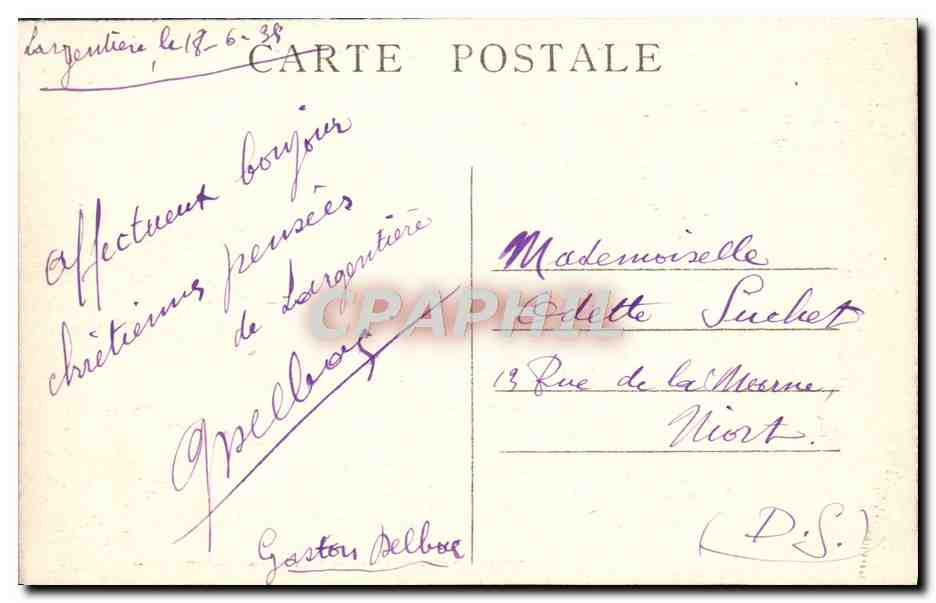 Largentière, le 18-6-38
CARTE POSTALE
Affectueux bonjour
chrétiennes pensées
de Largentière
GDelbos
Gaston Delbos
Mademoiselle
Odette Suchet
13 Rue de la Marne,
Niort.
(D.S.)
CPAPHIL